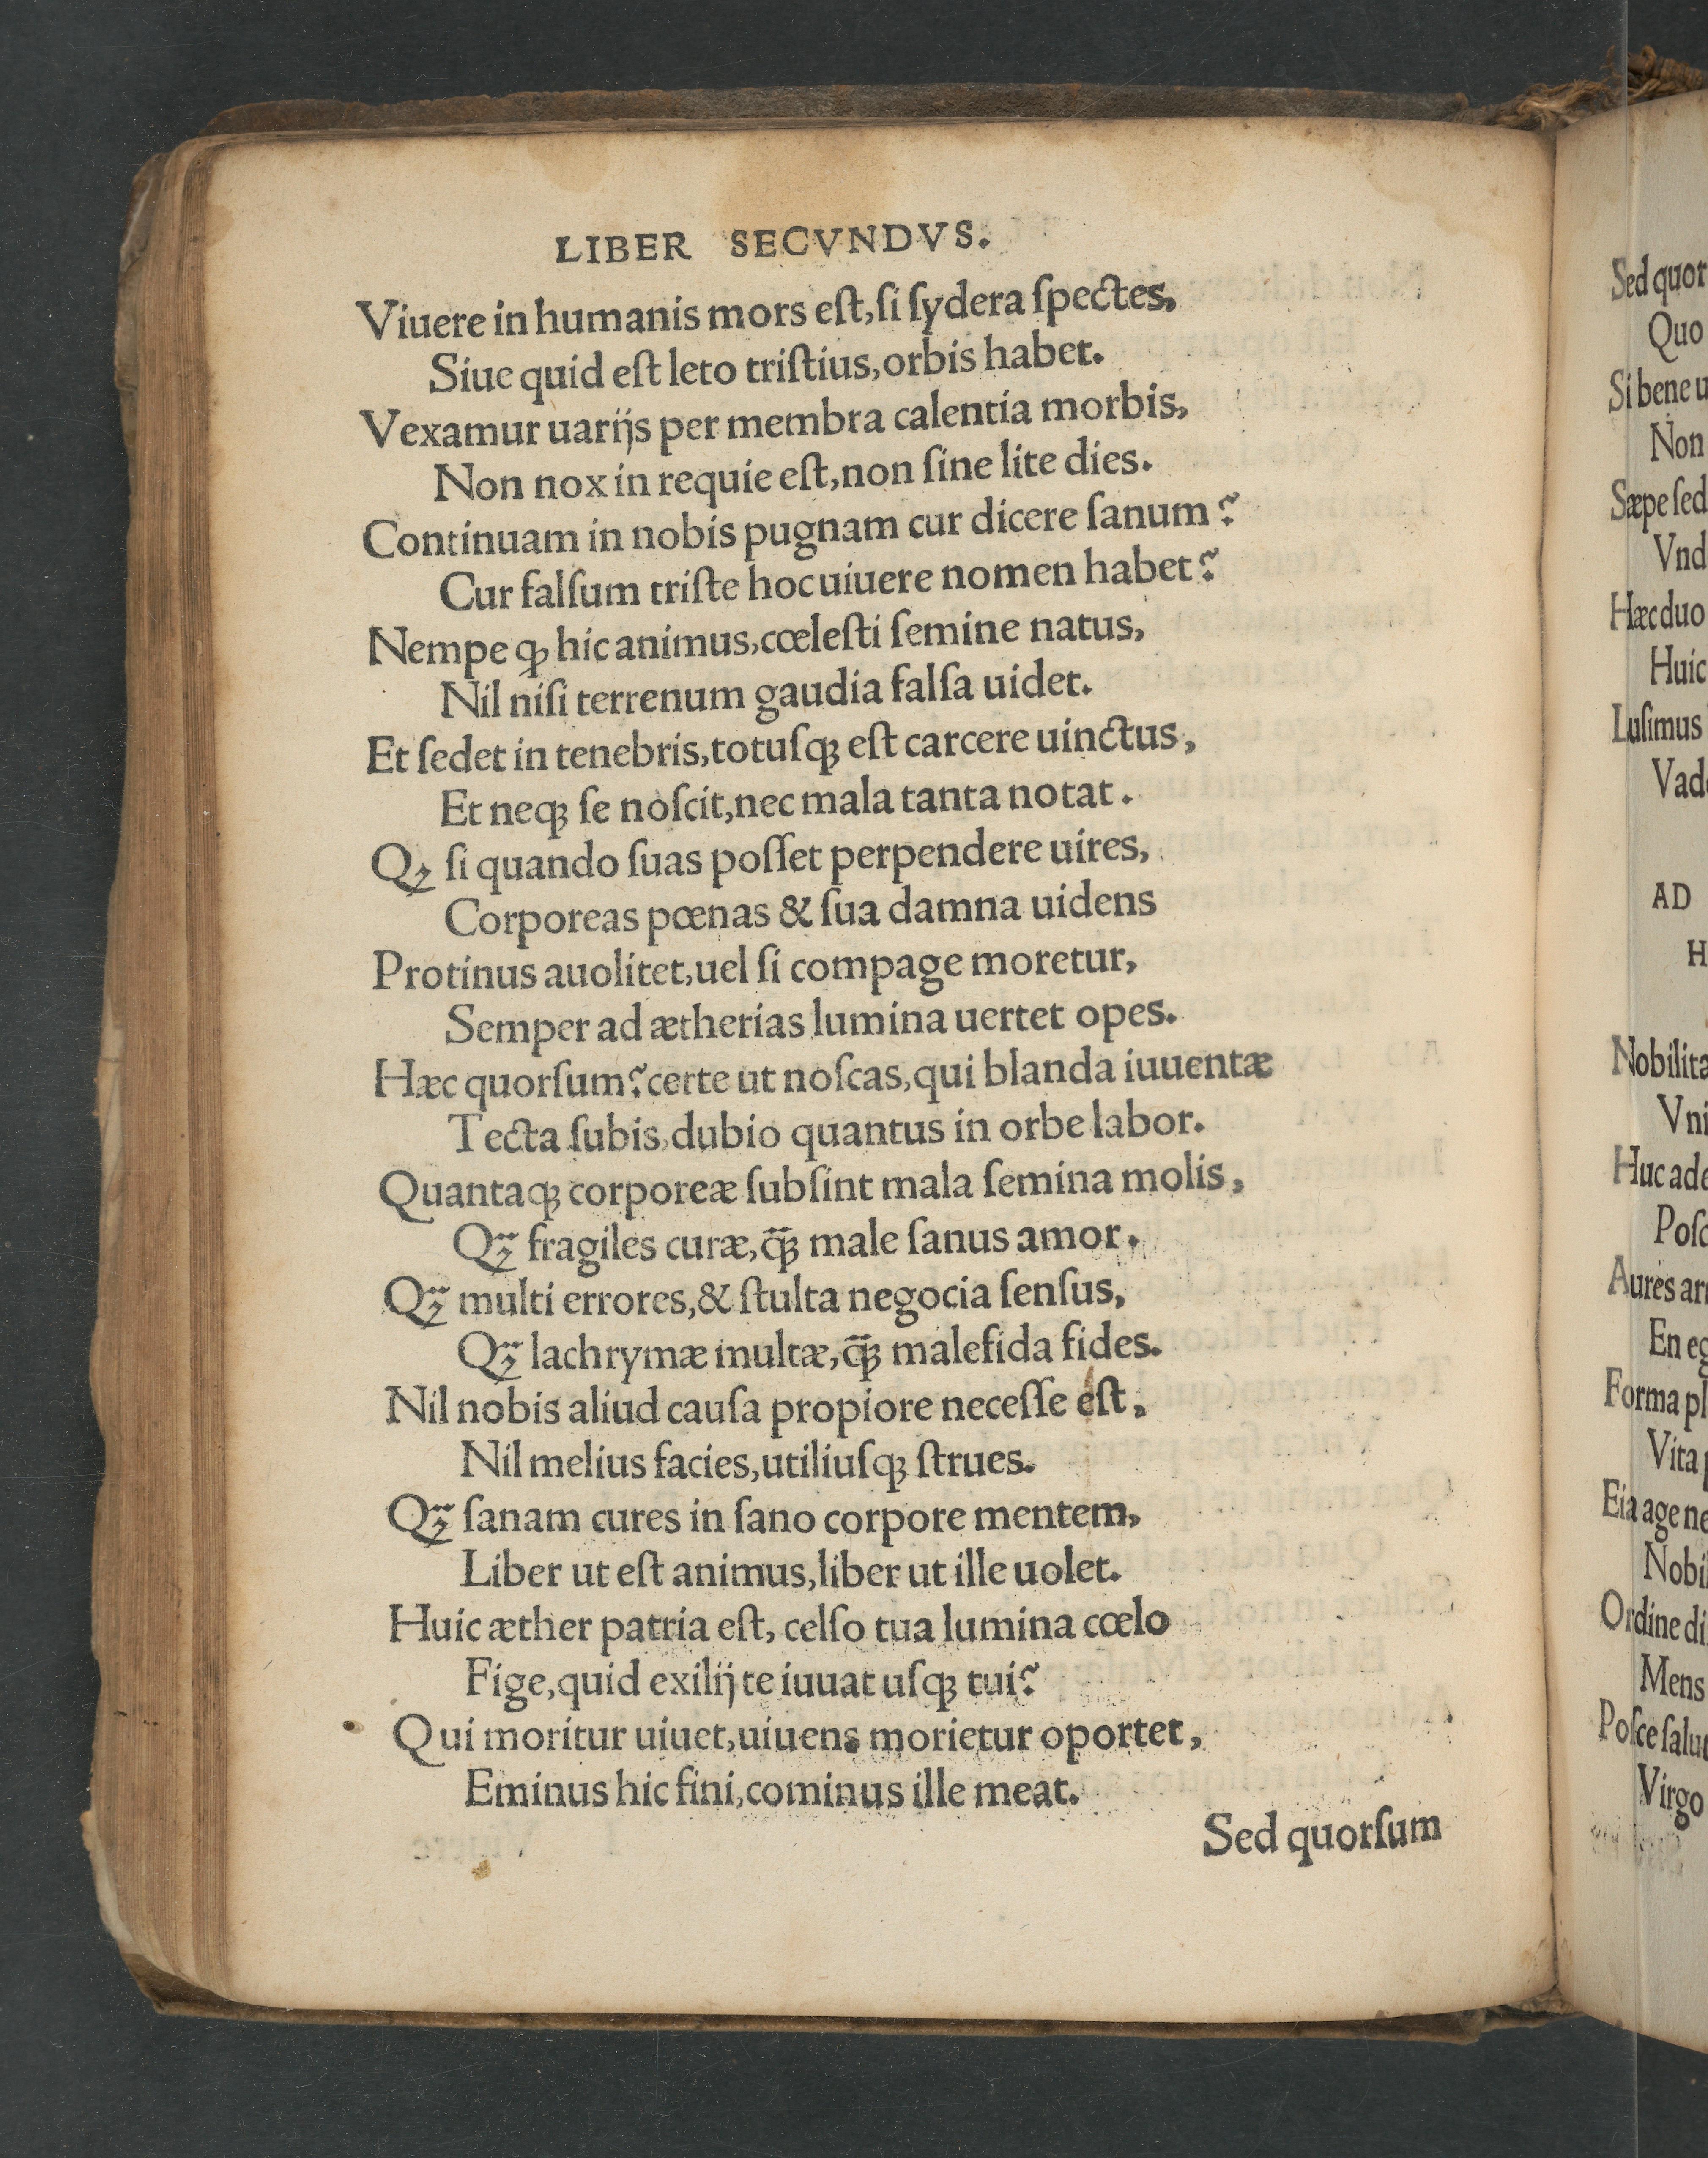 LIBER SECVNDVS.
Viuere in humanis mors eſt, ſi ſydera ſpectes,
Siue quid eſt leto triſtius, orbis habet.
Vexamur uarijs per membra calentia morbis,
Non nox in requie eſt, non ſine lite dies.
Continuam in nobis pugnam cur dicere ſanum?
Cur falſum triſte hoc uiuere nomen habet?
Nempe ꝙ hic animus, cœleſti ſemine natus,
Nil niſi terrenum gaudia falſa uidet.
Et ſedet in tenebris, totuſqꝫ eſt carcere uinctus,
Et neqꝫ ſe noſcit, nec mala tanta notat.
Qꝫ ſi quando ſuas poſſet perpendere uires,
Corporeas pœnas & ſua damna uidens
Protinus auolitet, uel ſi compage moretur,
Semper ad ætherias lumina uertet opes.
Hæc quorſum? certe ut noſcas, qui blanda iuuentæ
Tecta ſubis, dubio quantus in orbe labor.
Quantaqꝫ corporeæ ſubſint mala ſemina molis,
Qꝫ̃ fragiles curæ, qꝫ̃ male ſanus amor.
Qꝫ̃ multi errores, & ſtulta negocia ſenſus,
Qꝫ̃ lachrymæ multæ, qꝫ̃ malefida fides.
Nil nobis aliud cauſa propiore neceſſe eſt,
Nil melius facies, utiliuſqꝫ ſtrues.
Qꝫ̃ ſanam cures in ſano corpore mentem,
Liber ut eſt animus, liber ut ille uolet.
Huic æther patria eſt, celſo tua lumina cœlo
Fige, quid exilij te iuuat uſqꝫ tui?
Qui moritur uiuet, uiuens morietur oportet,
Eminus hic fini, cominus ille meat.
Sed quorſum
Sed quor
Quo
Si bene u
Non
Sæpe ſed
Vnd
Hæc duo
Huic
Luſimus
Vad
AD
H
Nobilita
Vni
Huc ade
Poſc
Aures ar
En eg
Forma pl
Vita
Eia age ne
Nobi
Ordine di
Mens
Poſce ſalu
Virgo